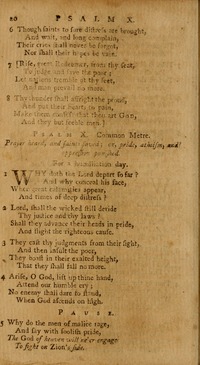 20 PSALM X.
6 Though saints to sore distress are brought,
And wait, and long complain,
Their cries shall never be forgot,
Nor shall their hopes be vain.
7 [Rise, great Redeemer, from thy seat,
To judge and save the poor;
Let nations tremble at thy feet,
And man prevail no more.
8 Thy thunder shall affright the proud,
And put their hearts to pain,
Make them confess that thou art God,
And they but feeble men.]
PSALM X. Common Metre.
Prayer heard, and saints saved; or, pride, atheism, and
oppression punished.
For a humiliation day.
1 WHY doth the Lord depart so far?
And why conceal his face,
When great calamities appear,
And times of deep distress?
2 Lord, shall the wicked still deride
Thy justice and thy laws?
Shall they advance their heads in pride,
And slight the righteous cause.
3 They cast thy judgments from their sight,
And then insult the poor,
They boast in their exalted height,
That they shall fall no more.
4 Arise, O God, lift up thine hand,
Attend our humble cry;
No enemy shall dare to stand,
When God ascends on high.
PAUSE.
5 Why do the men of malice rage,
And say with foolish pride,
The God of heaven will ne'er engage
To fight on Zion's side.